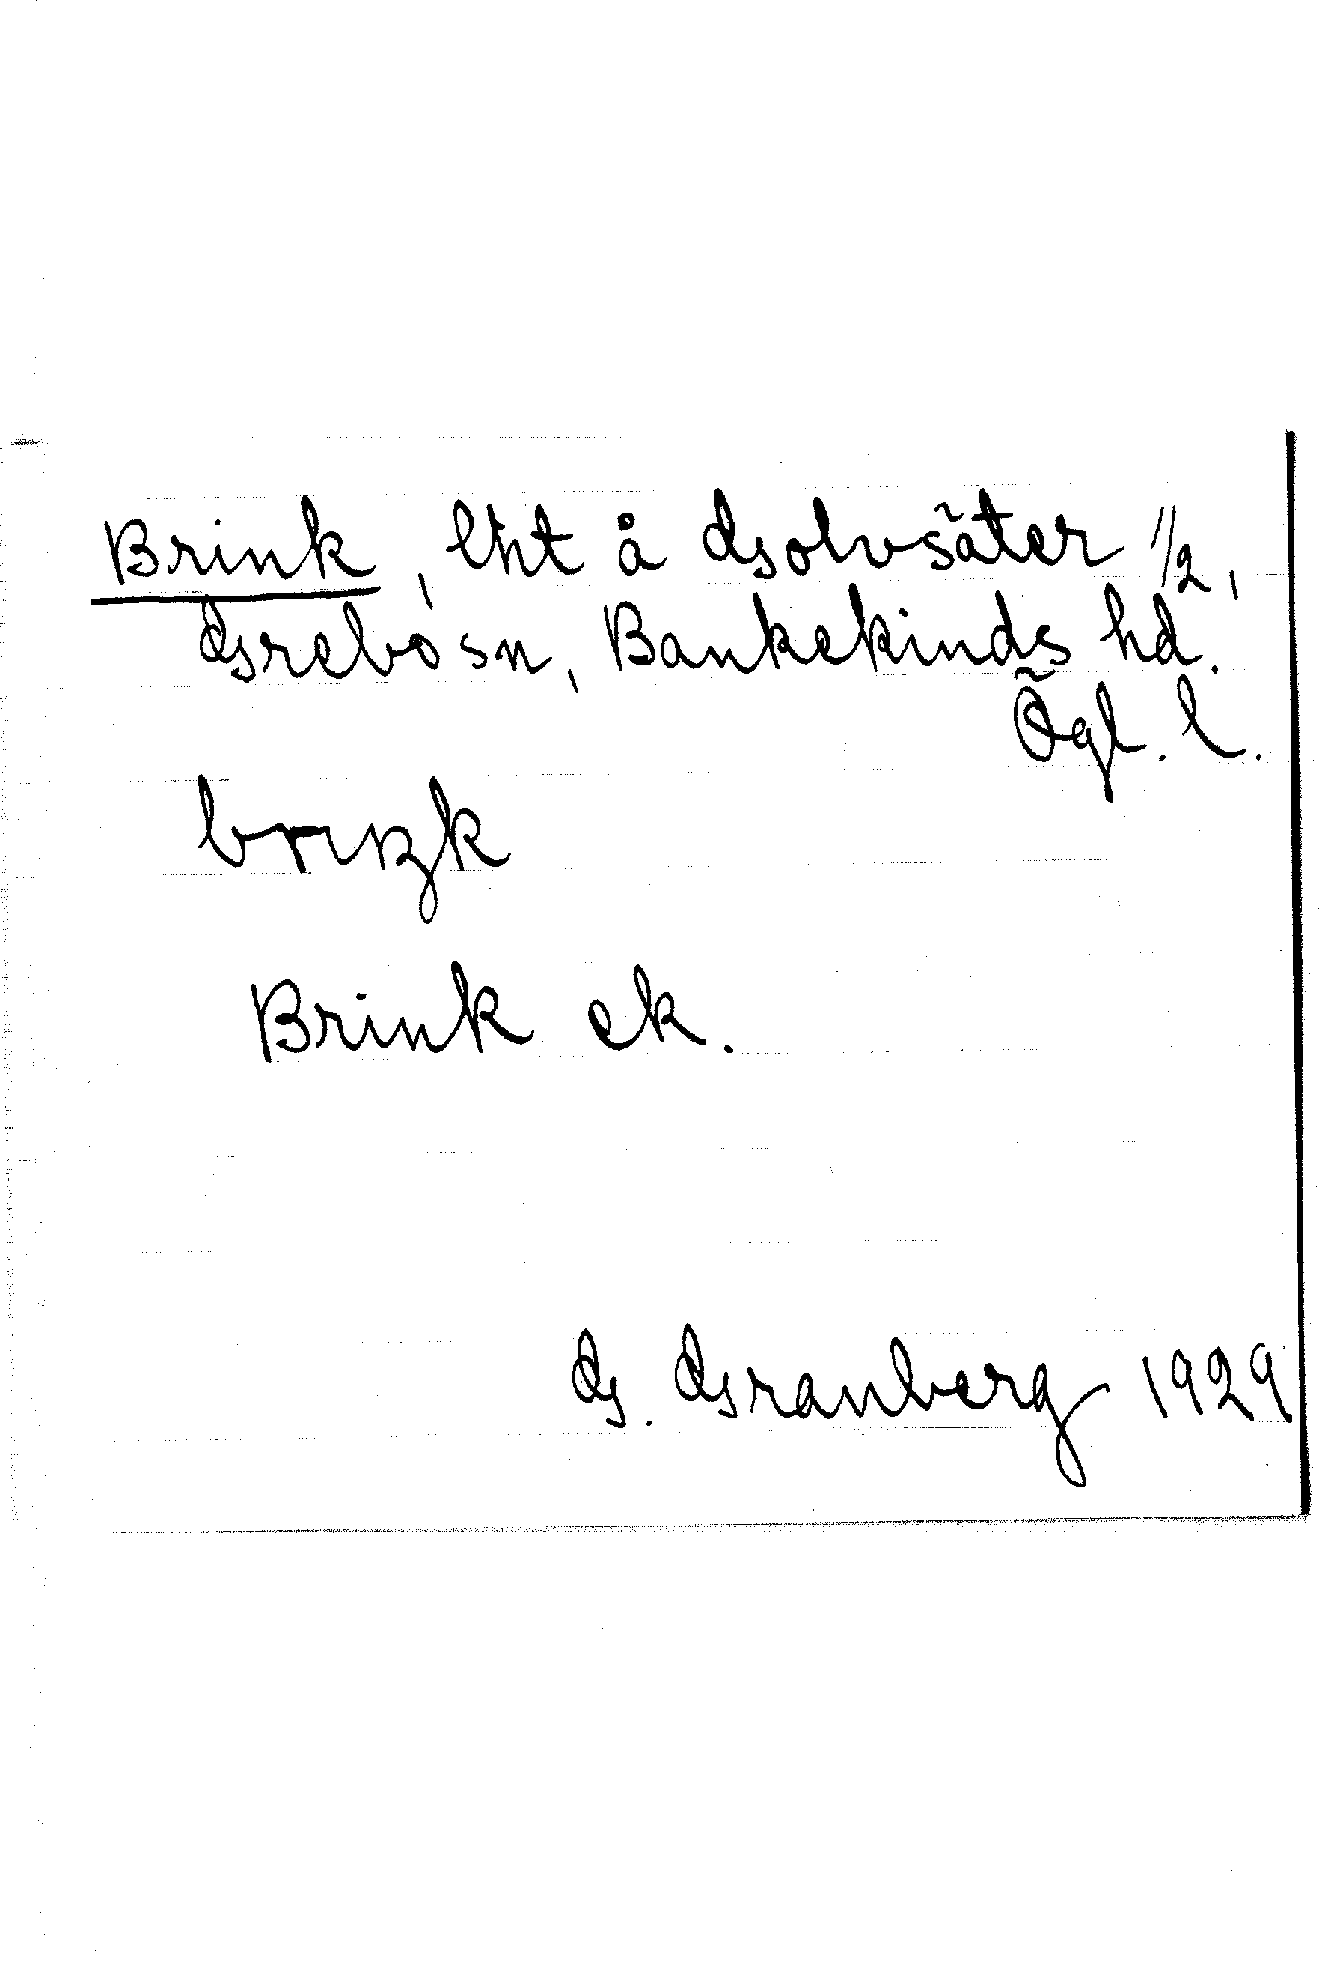 Brink, lht å Golvsäter 1/2,
Grebo sn, Bankekinds hd.
Ögl. l.
brıŋk
Brink ek.
G. Granberg 1929